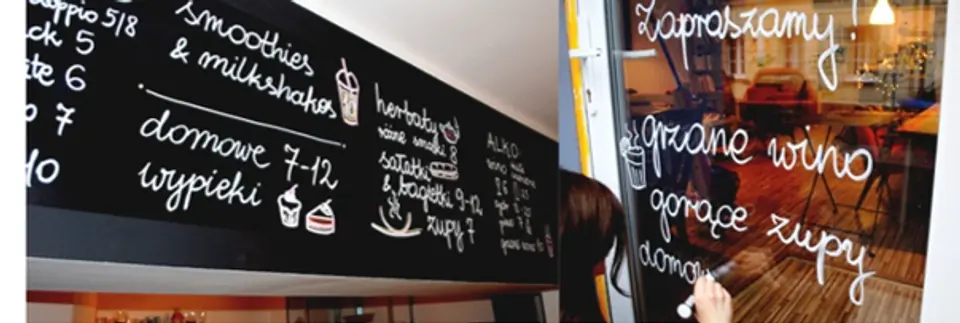 5/8
ck 5
te 6
7
10
smoothies
& milkshakes
domowe 7-12
wypieki
herbaty
różne smaki 8
sałatki
& bagietki 9-12
zupy 7
ALKO
wino
grzane wino
Zapraszamy!
grzane wino
gorące zupy
domow